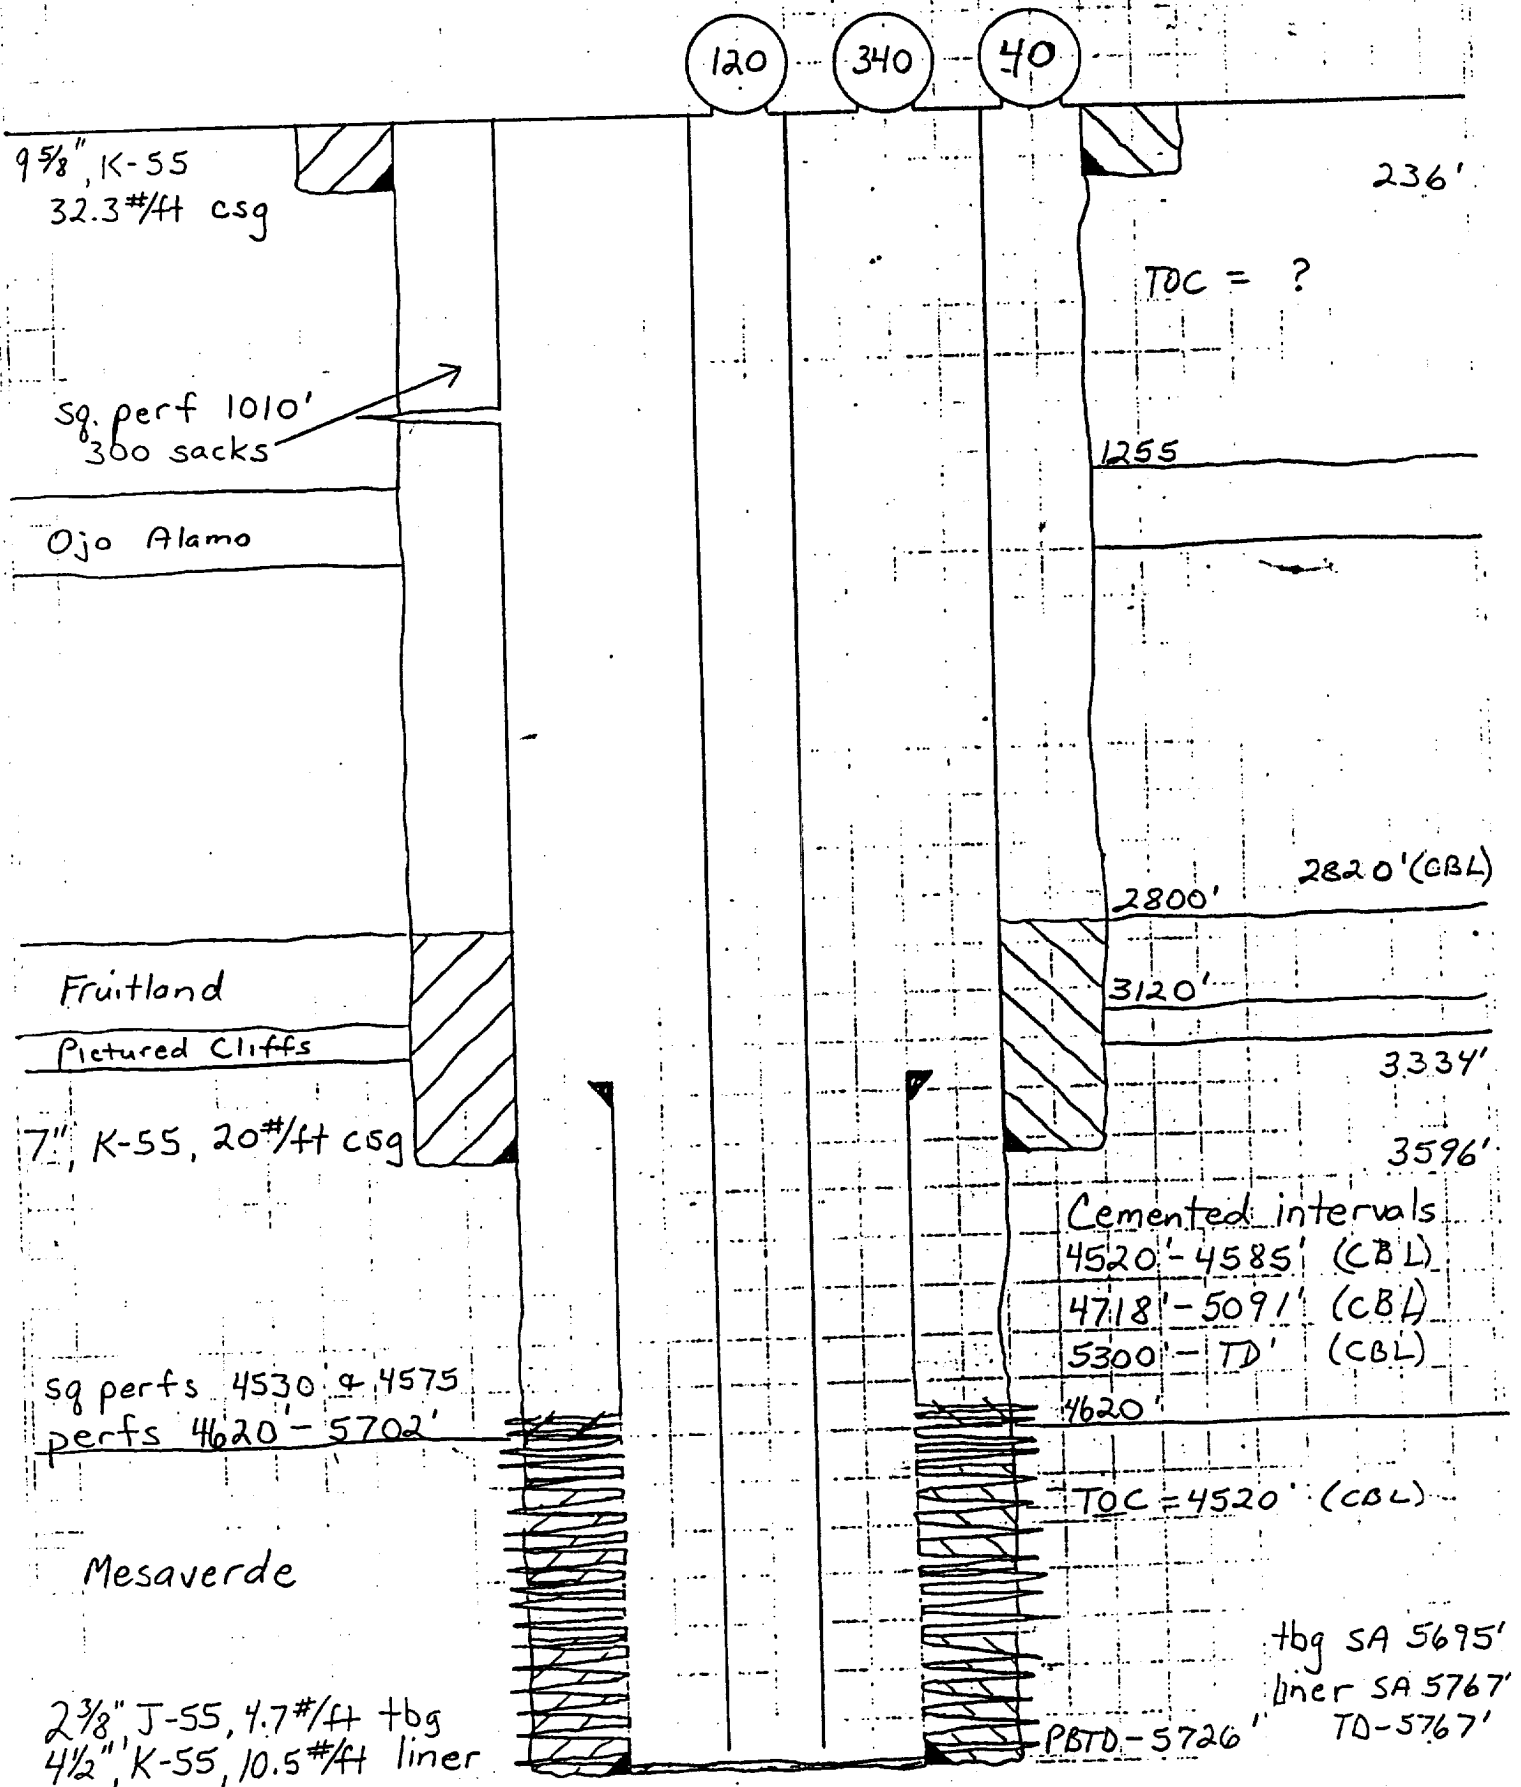 120 340 40
9 5/8", K-55
32.3#/ft csg
236'
TOC = ?
sq. perf 1010'
300 sacks
1255
Ojo Alamo
2820'(CBL)
2800'
Fruitland
3120'
Pictured Cliffs
3334'
7", K-55, 20#/ft csg
3596'
Cemented intervals
4520'-4585' (CBL)
4718'-5091' (CBL)
5300'-TD' (CBL)
sq perfs 4530' & 4575
perfs 4620'-5702'
4620'
TOC = 4520' (CBL)
Mesaverde
tbg SA 5695'
liner SA 5767'
2 3/8", J-55, 4.7#/ft tbg
PBTD-5726' TD-5767'
4 1/2", K-55, 10.5#/ft liner